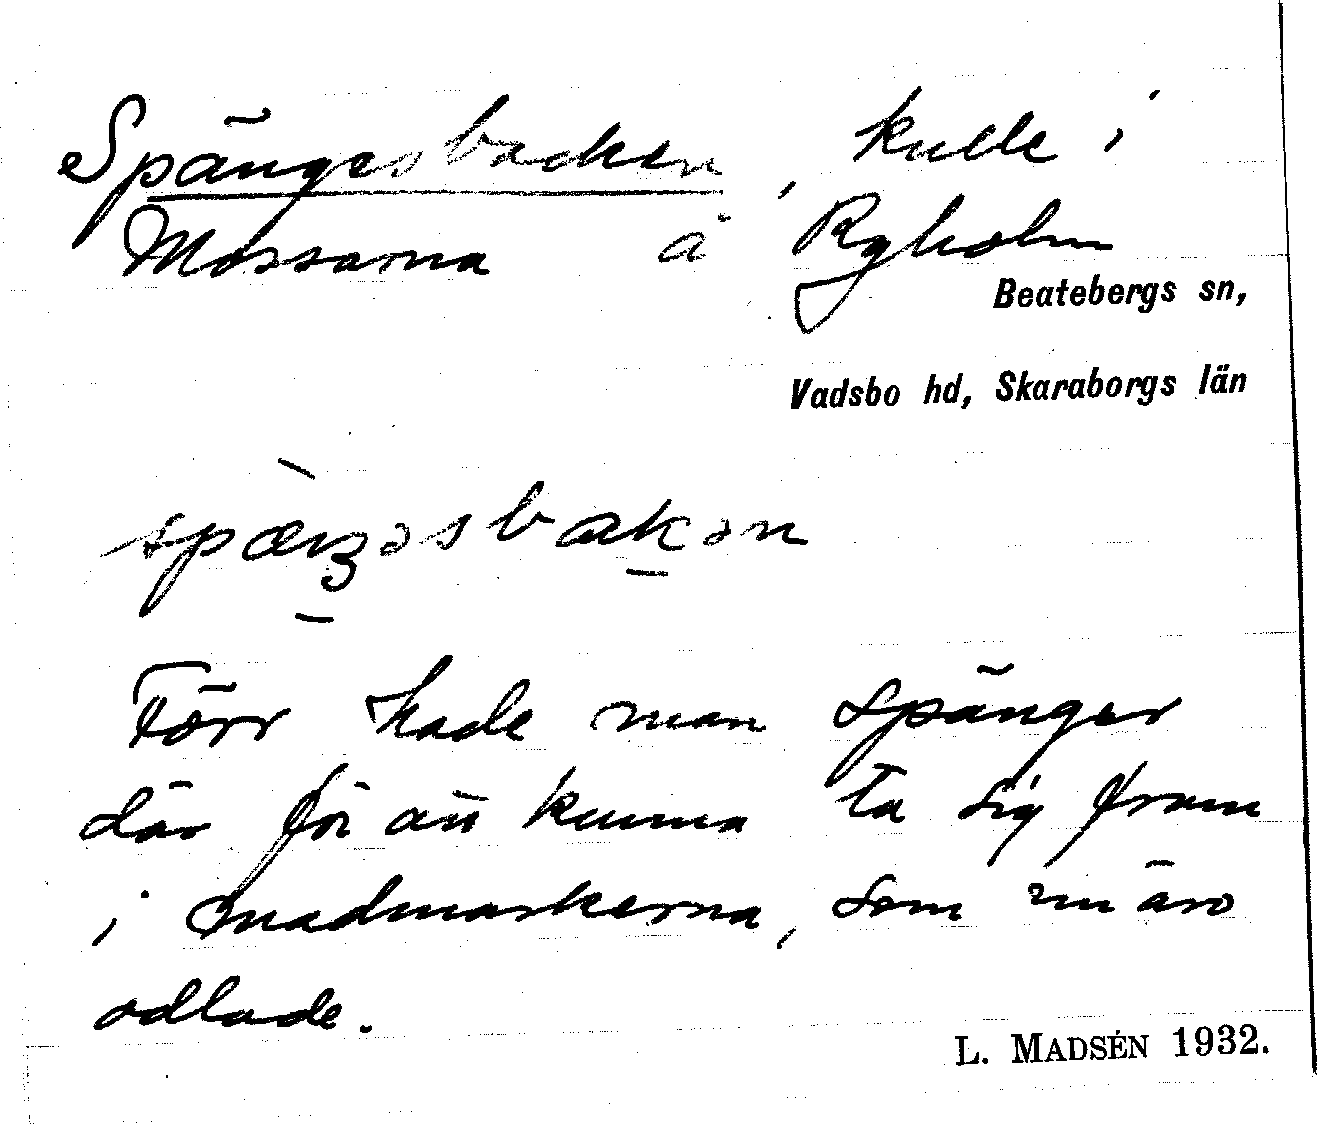 Spängesbacken, kulle i
Mossarna å Ryholm
Beatebergs sn,
Vadsbo hd, Skaraborgs län
spæŋəsbakən
Förr hade man spänger
där för att kunna ta sig fram
i madmarkerna, som nu äro
odlade.
L. MADSÉN 1932.